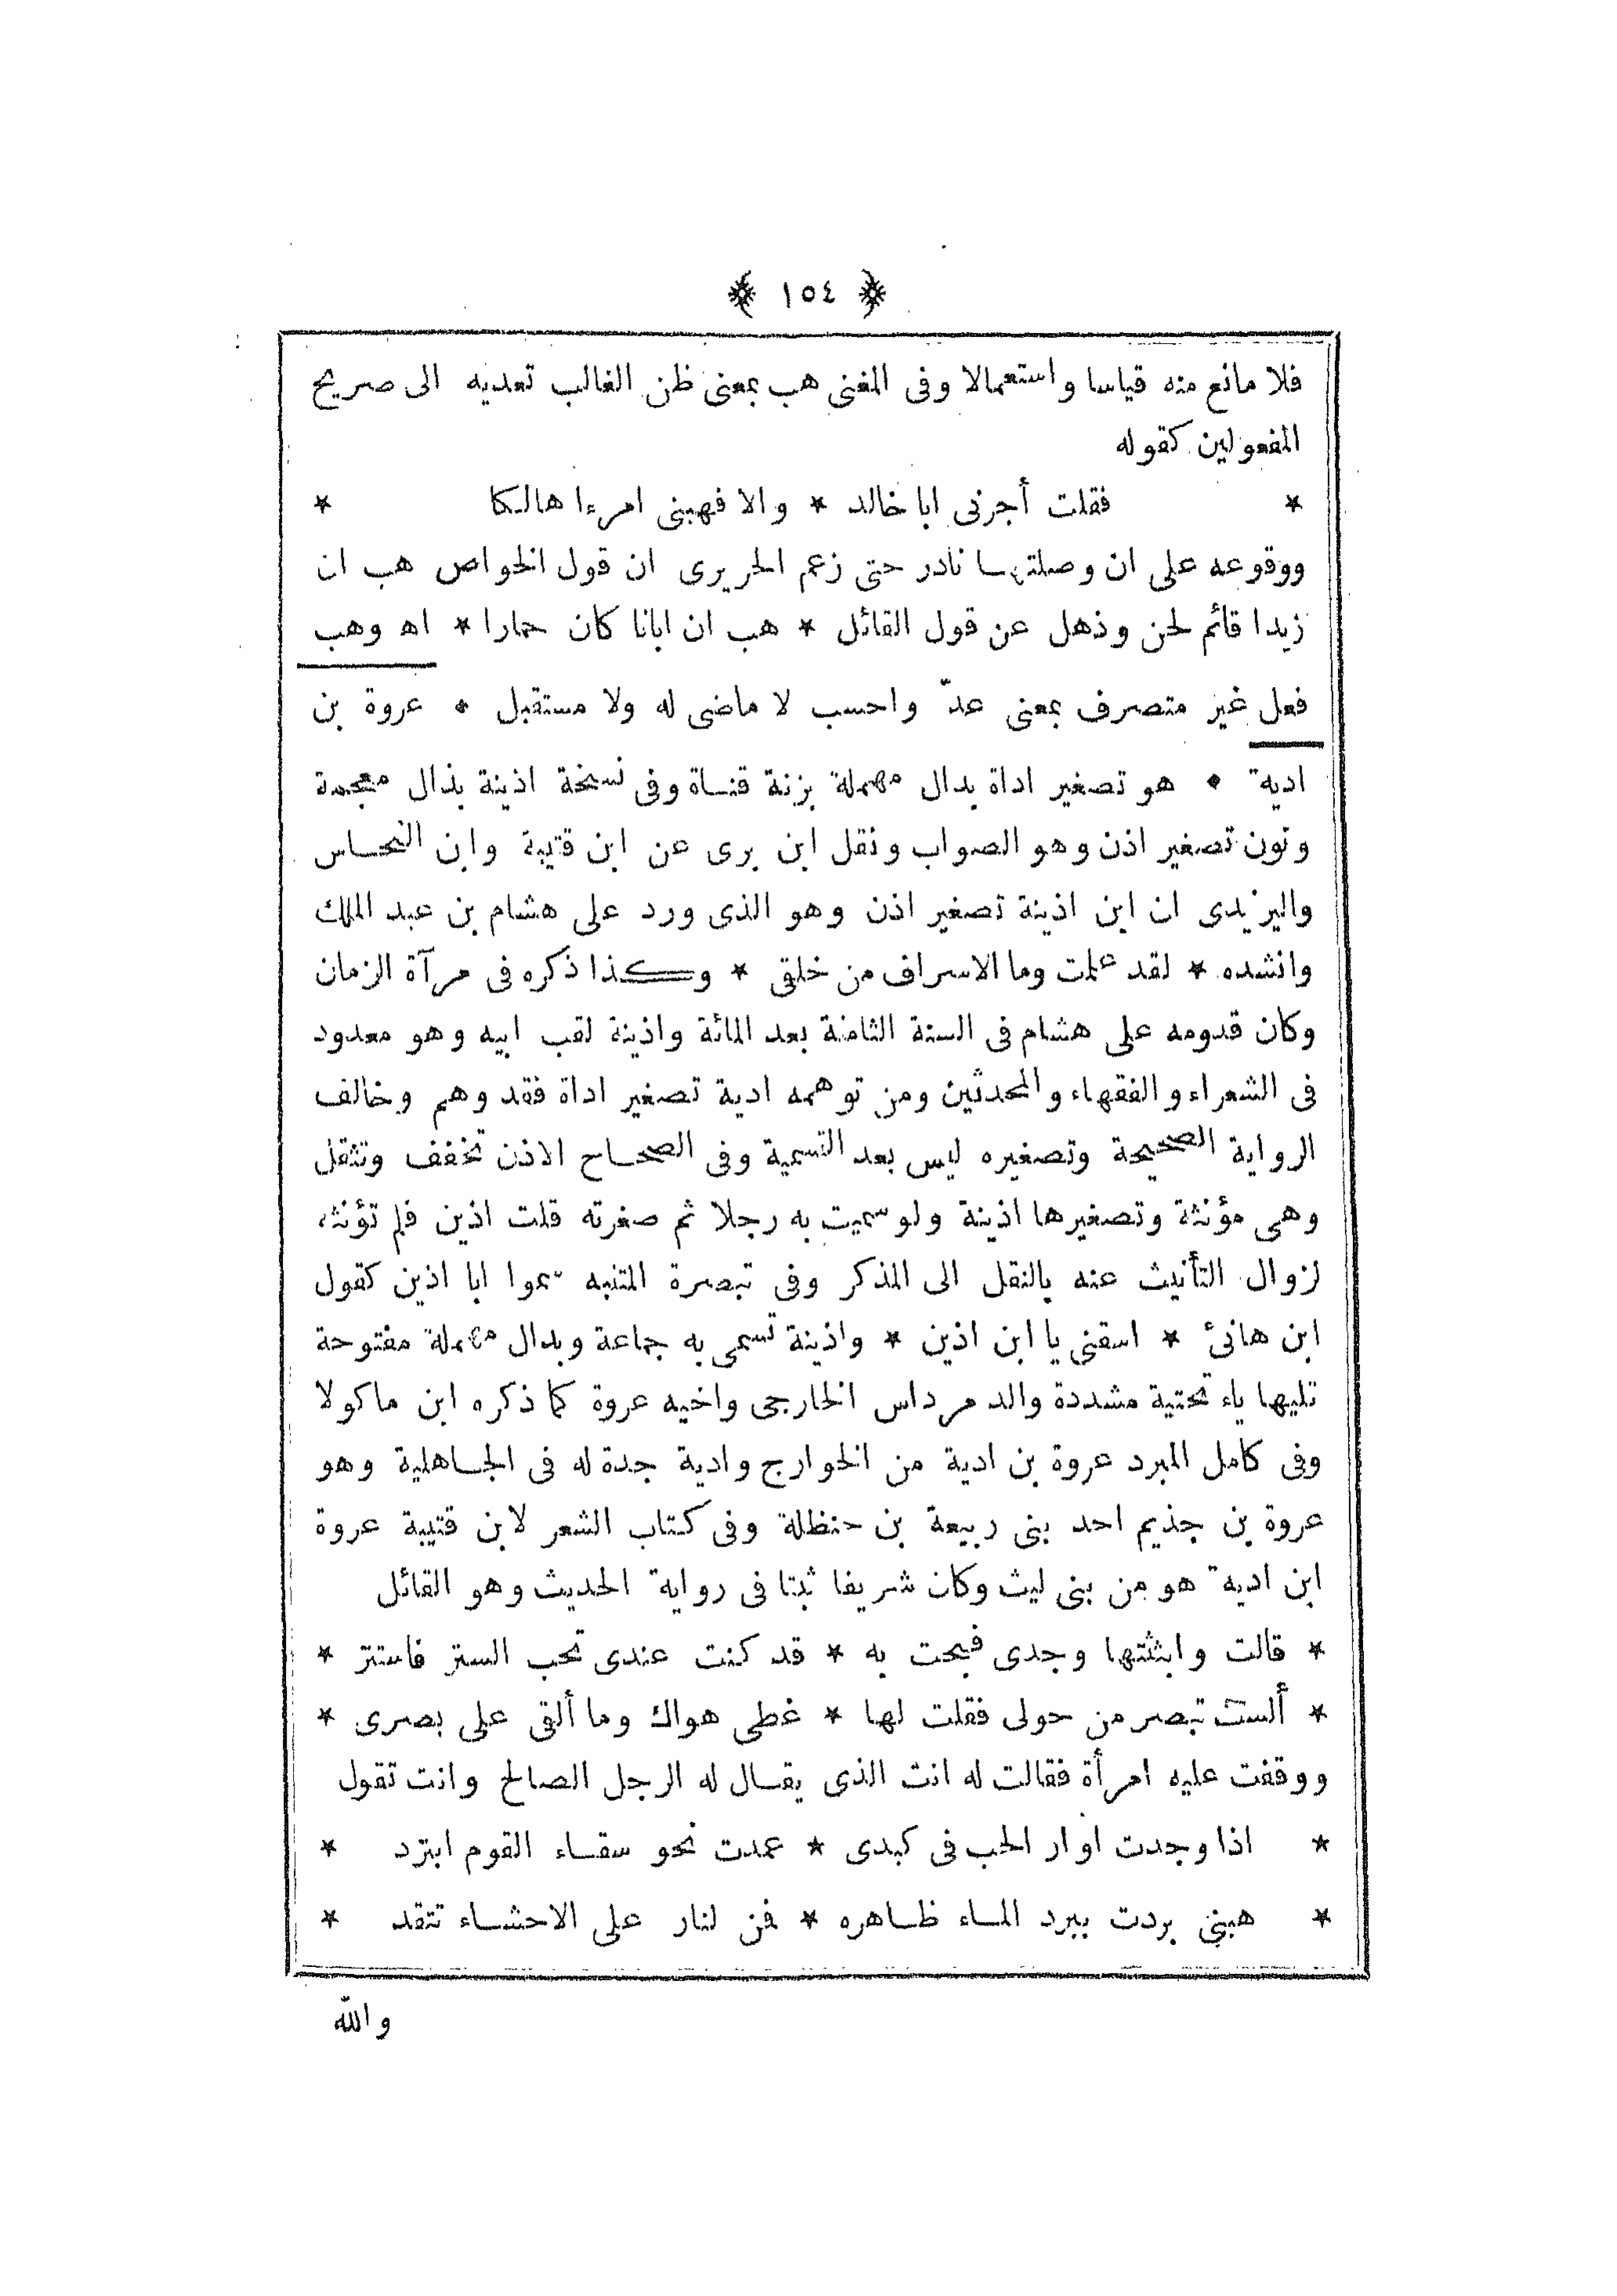 ﴿ ١٥٤ ﴾
فلا مانع منه قياسا واستعمالا وفى المغنى هب بمعنى ظن الغالب تعديه الى صريح
المفعولين كقوله
* فقلت أجرنى ابا خالد * والا فهبنى امرءا هالكا *
ووقوعه على ان وصلتها نادر حتى زعم الحريرى ان قول الخواص هب ان
زيدا قائم لحن وذهل عن قول القائل * هب ان ابانا كان حمارا * اه وهب
فعل غير متصرف بمعنى عدّ واحسب لا ماضى له ولا مستقبل • عروة بن
ادية • هو تصغير اداة بدال مهملة بزنة قناة وفى نسخة اذينة بذال معجمة
ونون تصغير اذن وهو الصواب ونقل ابن برى عن ابن قتيبة وابن النحاس
واليزيدى ان ابن اذينة تصغير اذن وهو الذى ورد على هشام بن عبد الملك
وانشده * لقد علمت وما الاسراف من خلقى * وكذا ذكره فى مرآة الزمان
وكان قدومه على هشام فى السنة الثامنة بعد المائة واذينة لقب ابيه وهو معدود
فى الشعراء والفقهاء والمحدثين ومن توهمه ادية تصغير اداة فقد وهم وخالف
الرواية الصحيحة وتصغيره ليس بعد التسمية وفى الصحاح الاذن تخفف وتثقل
وهى مؤنثة وتصغيرها اذينة ولو سميت به رجلا ثم صغرته قلت اذين فلم تؤنثه
لزوال التأنيث عنه بالنقل الى المذكر وفى تبصرة المتنبه سموا ابا اذين كقول
ابن هانئ * اسقنى يا ابن اذين * واذينة تسمى به جماعة وبدال مهملة مفتوحة
تليها ياء تحتية مشددة والد مرداس الخارجى واخيه عروة كما ذكره ابن ماكولا
وفى كامل المبرد عروة بن ادية من الخوارج وادية جدة له فى الجاهلية وهو
عروة بن جذيم احد بنى ربيعة بن حنظلة وفى كتاب الشعر لابن قتيبة عروة
ابن ادية هو من بنى ليث وكان شريفا ثبتا فى رواية الحديث وهو القائل
* قالت وابثثتها وجدى فبحت به * قد كنت عندى تحب الستر فاستتر *
* ألست تبصر من حولى فقلت لها * غطى هواك وما ألقى على بصرى *
ووقفت عليه امرأة فقالت له انت الذى يقال له الرجل الصالح وانت تقول
* اذا وجدت اوار الحب فى كبدى * عمدت نحو سقاء القوم ابترد *
* هبنى بردت ببرد الماء ظاهره * فمن لنار على الاحشاء تتقد *
والله